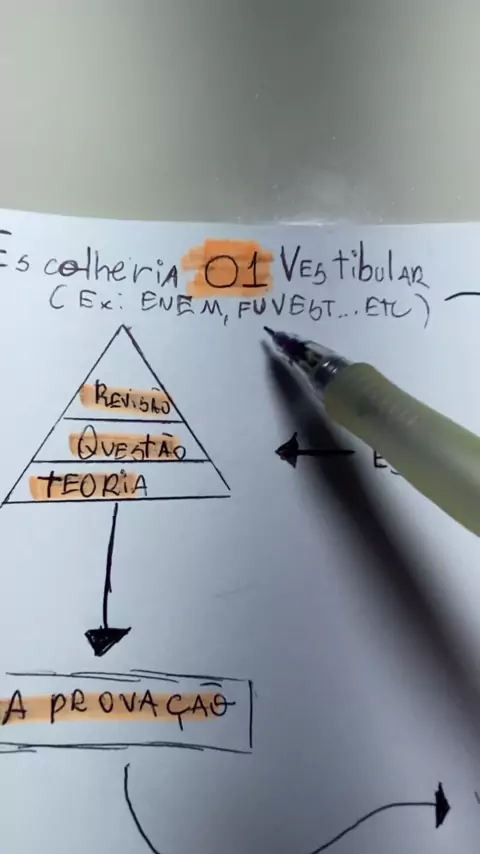 Escolheria 01 Vestibular
(Ex: ENEM, FUVEST... ETC)
REVISÃO
QUESTÃO
TEORIA
A PROVAÇÃO